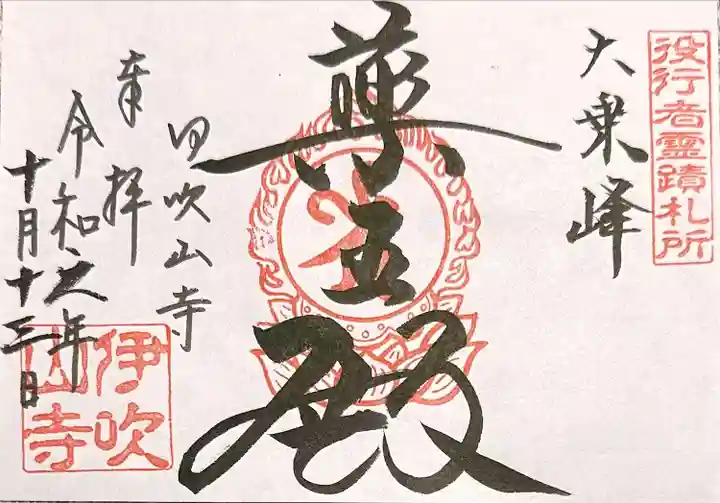 役行者霊蹟札所
大乗峰
薬王殿
伊吹山寺
奉拝
令和年
十月十三日
伊吹山寺